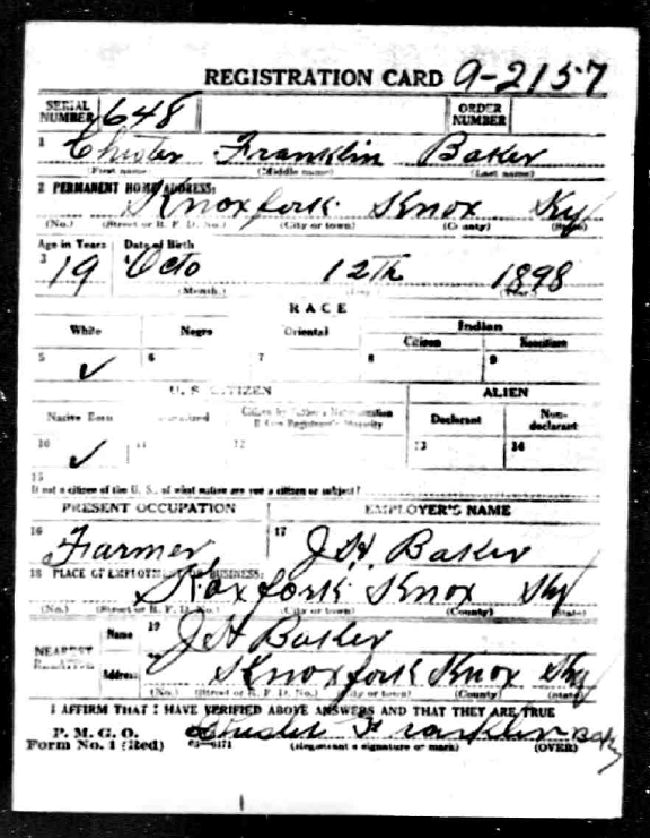 REGISTRATION CARD 9-2157
SERIAL NUMBER 648 ORDER NUMBER
1 Chester Franklin Baker
(First name) (Middle name) (Last name)
2 PERMANENT HOME ADDRESS:
Knoxfork Knox Ky
(No.) (Street or R. F. D. No.) (City or town) (County) (State)
Age in Years Date of Birth
3 19 4 Octo 12th 1898
(Month.) (Day.) (Year.)
RACE
White Negro Oriental Indian
Citizen Noncitizen
5 ✓ 6 7 8 9
U. S. CITIZEN ALIEN
Native Born Naturalized Citizen by Father's Naturalization Before Registrant's Majority Declarant Non-declarant
10 ✓ 11 12 13 14
15
If not a citizen of the U. S., of what nation are you a citizen or subject?
PRESENT OCCUPATION EMPLOYER'S NAME
16 Farmer 17 J. H. Baker
18 PLACE OF EMPLOYMENT OR BUSINESS:
Knoxfork Knox Ky
(No.) (Street or R. F. D. No.) (City or town) (County) (State)
NEAREST RELATIVE Name 19 J H Baker
Address Knoxfork Knox Ky
(No.) (Street or R. F. D. No.) (City or town) (County) (State)
I AFFIRM THAT I HAVE VERIFIED ABOVE ANSWERS AND THAT THEY ARE TRUE
P. M. G. O.
Form No. 1 (Red) 03-6171 Chester Franklin Baker
(Registrant's signature or mark) (OVER)